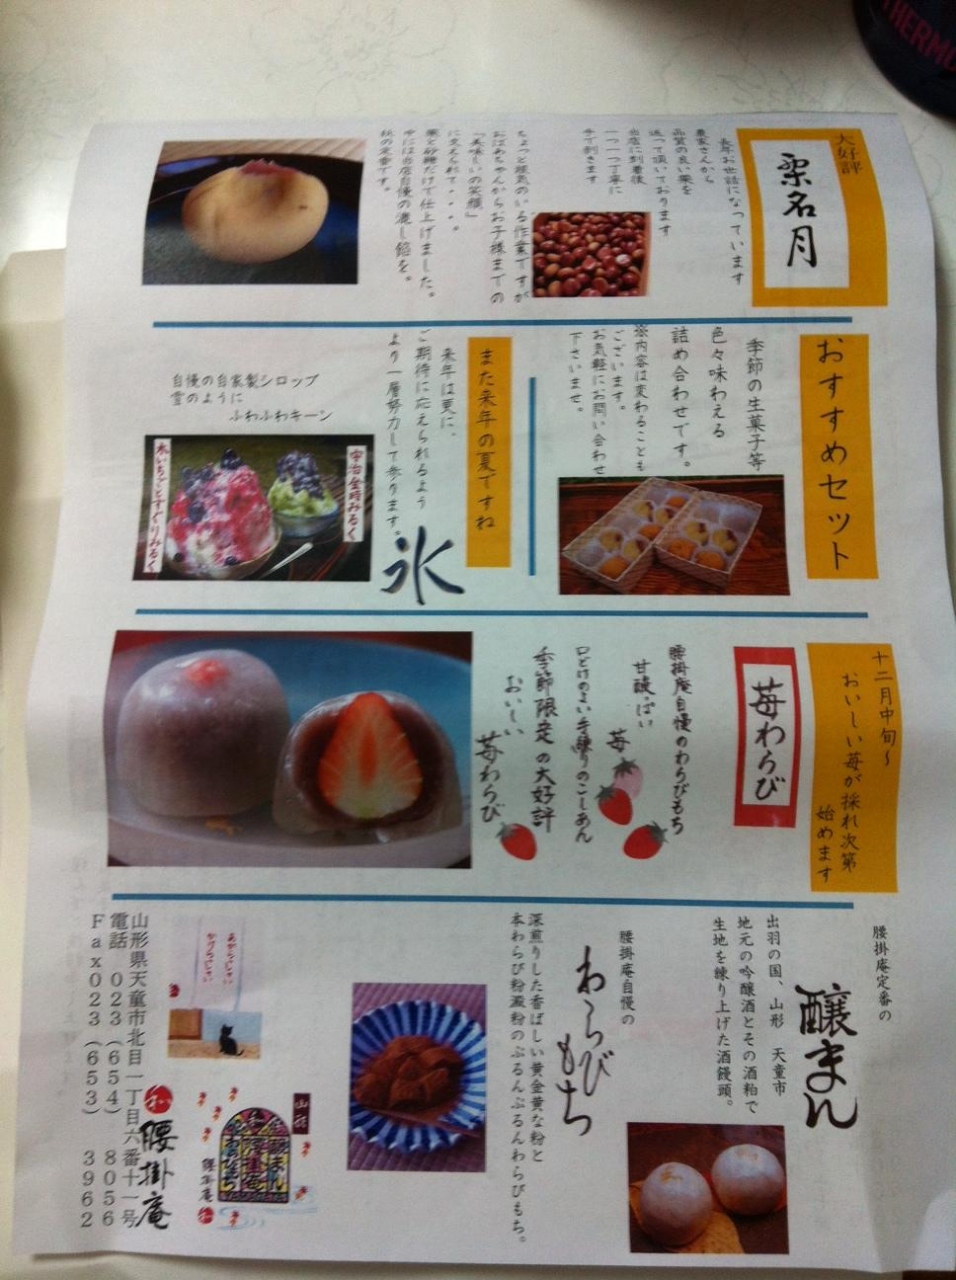 THERMO
大好評
栗名月
長年お世話になっています
農家さんから
品質の良い栗を
送って頂いております
当店に到着後
一つ一つ丁寧に
手で剥きます
ちょっと根気のいる作業ですが
おばあちゃんからお子様までの
「美味しいの笑顔」
に支えられて・・・。
栗と砂糖だけで仕上げました。
中には当店自慢の漉し餡を。
秋の定番です。
おすすめセット
季節の生菓子等
色々味わえる
詰め合わせです。
※内容は変わることも
ございます。
お気軽にお問い合わせ
下さいませ。
また来年の夏ですね
来年は更に、
ご期待に応えられるよう
より一層努力して参ります。
氷
自慢の自家製シロップ
雪のように
ふわふわキーン
宇治金時みるく
木いちごとすぐりみるく
十二月中旬~
おいしい苺が採れ次第
始めます
苺わらび
腰掛庵自慢のわらびもち
甘酸っぱい
苺
口どけのよい手練りのこしあん
季節限定の大好評
おいしい
苺わらび
腰掛庵定番の
醸まん
出羽の国、山形 天童市
地元の吟醸酒とその酒粕で
生地を練り上げた酒饅頭。
腰掛庵自慢の
わらびもち
深煎りした香ばしい黄金黄な粉と
本わらび粉澱粉のぷるんぷるんわらびもち。
山形
腰掛庵
腰掛庵
山形県天童市北目一丁目六番十一号
電話 023(654)8056
Fax023(653)3962